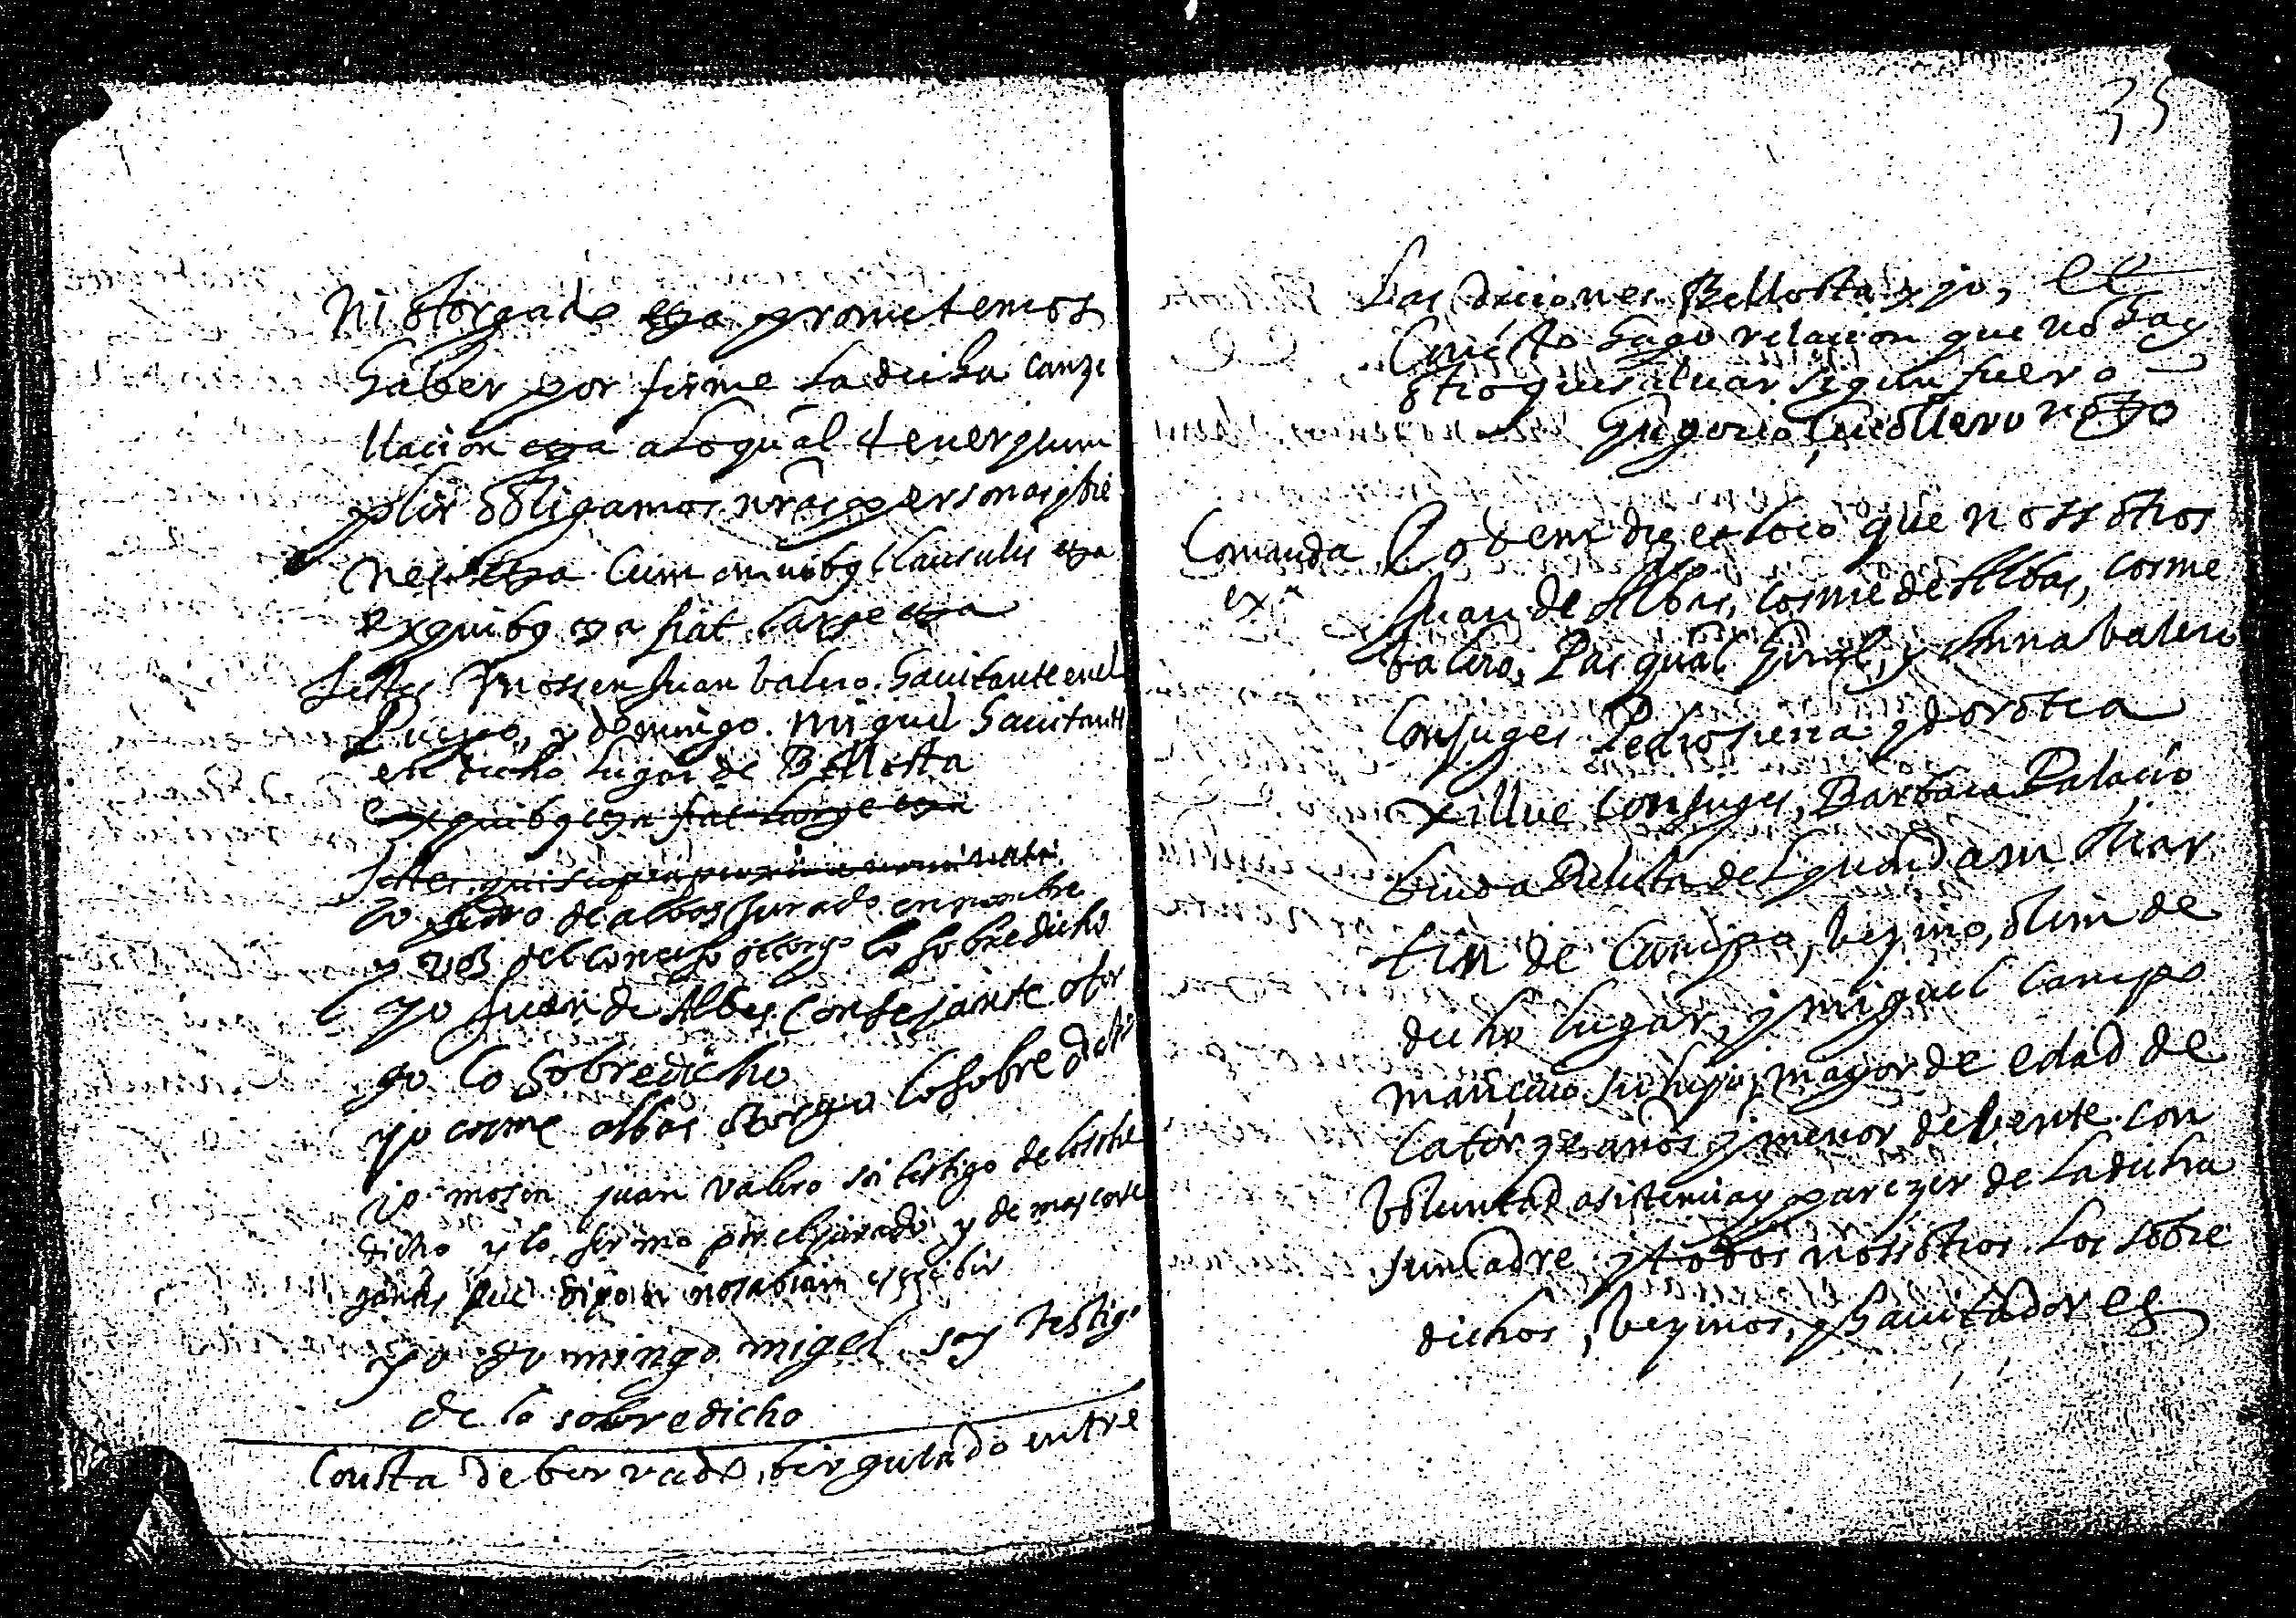 ni otorgado etza prometemos
haber por firme la dicha canze
llacion etza a lo qual tener y cum
plir obligamos nr̃as personas y bie
nes etza Cum omnibꝯ clausulis etza
ex quibꝯ etza fiat large etza
Testes Mossen Juan Valero havitante en el
Pueyo, y domingo miguel havitante
en dicho lugar de Bellosta
ex quibꝯ etza fiat large etza
Testes qui supra proxime nominati
Yo Pedro de albas Jurado en nombre
y voz del Concejo otorgo lo sobredicho
yo Juan de Albas Consejante otor
go lo sobredicho
yo cosme albas otorgo lo sobre dcho
yo mosen juan valero soi testigo de lo sobre
dicho y lo firmo por el jurado y demas conce
gantes que dijeron no sabian escribir
yo domingo migel soy testigo
de lo sobredicho
Consta de borrado, birgulado entre
35
las diciones Bellosta, y yo, et
Cuesto hago relacion que no hay
otro que salvar segun fuero
Gregorio Cuello notͦ
Comanda Eodem die et loco que nossotros
exᵃ Juan de Albas, Cosme de Albas, cosme
Valero, Pasqual Giral, y Anna balero
Conjuges Pedro sierra y dorotea
Xillue Conjuges, Barbara Palacio
biuda Relicta del quondam Mar
tin de Campo, vezino, olim de
dicho lugar, y miguel Campo
mancevo su hijo, mayor de edad de
catorze años y menor de vente con
voluntad asistencia y parezer de la dicha
su madre y todos nossotros los sobre
dichos, vezinos, y havitadores